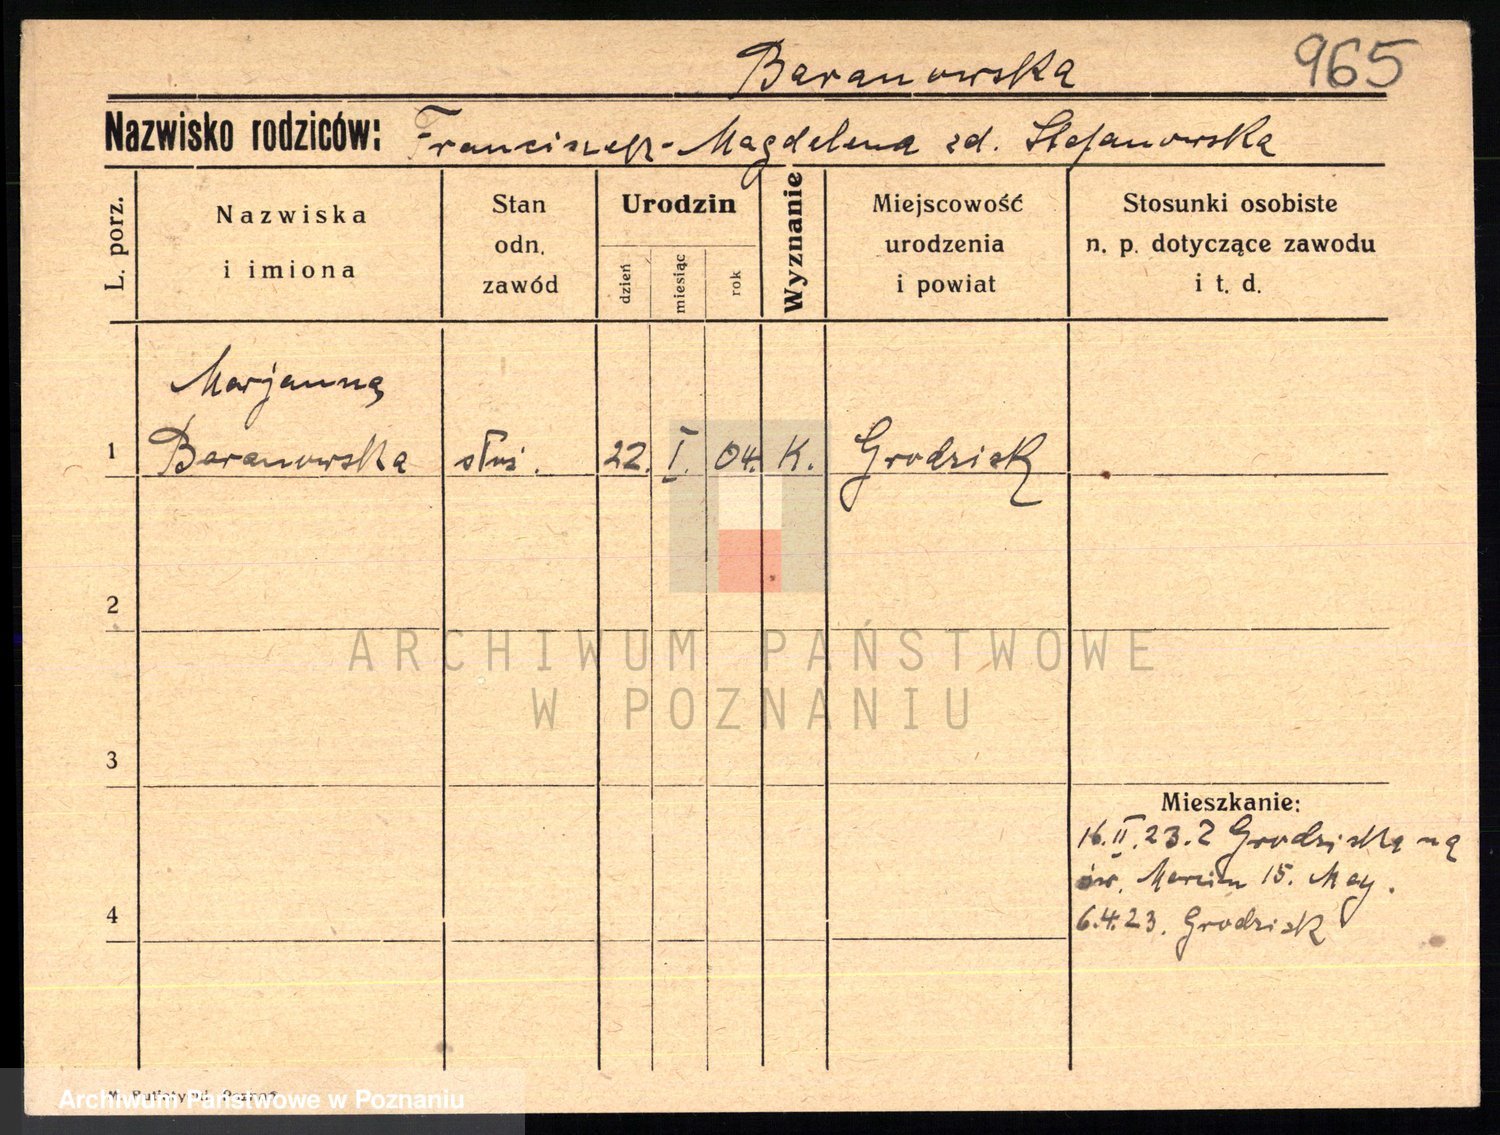 Baranowska 965
Nazwisko rodziców: Franciszek - Magdelena zd. Stefanowska
L. porz.
Nazwiska
i imiona
Stan
odn.
zawód
Urodzin
dzień
miesiąc
rok
Wyznanie
Miejscowość
urodzenia
i powiat
Stosunki osobiste
n. p. dotyczące zawodu
i t. d.
Marjanna
1 Baranowska służ. 22. I. 04. K. Grodzisk
2
ARCHIWUM PAŃSTWOWE
W POZNANIU
3
Mieszkanie:
16.II.23. Z Grodziska na
św. Marcin 15. May.
4 6.4.23. Grodzisk
Archiwum Państwowe w Poznaniu